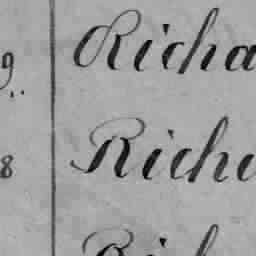 9 Richa
8 Riche
Rich